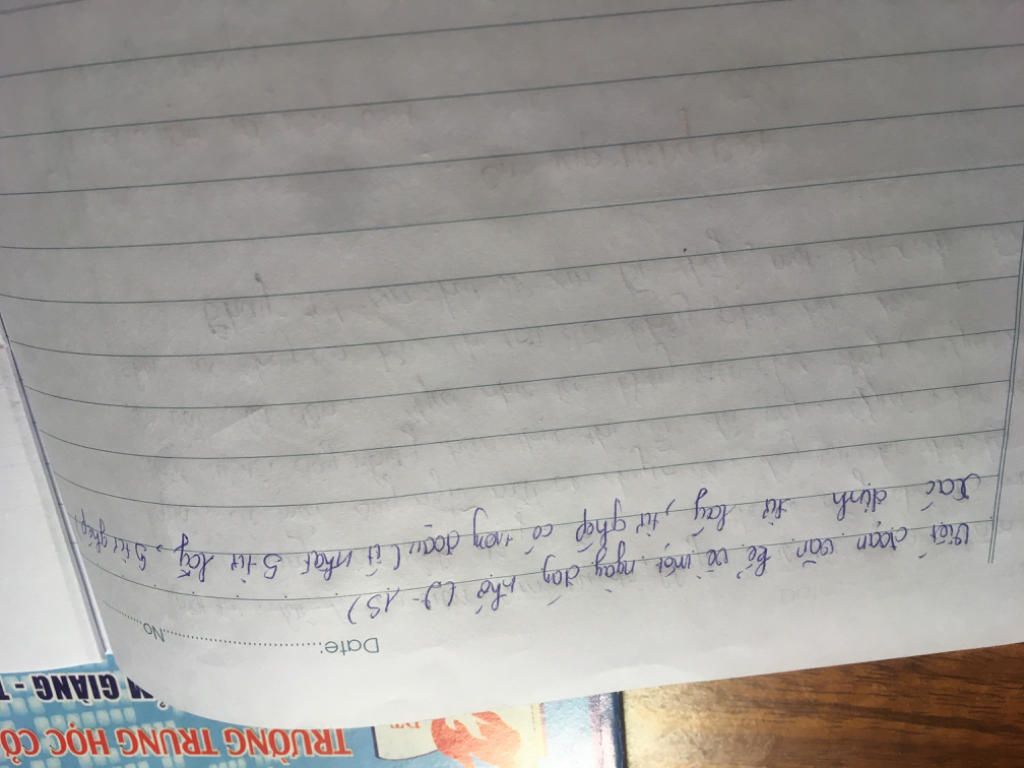 TRƯỜNG TRUNG HỌC CƠ
GIÀNG - T
Date: No.
Viết đoạn văn kể về một ngày đáng nhớ ( - 15)
Xác định từ láy, từ ghép có trong đoạn (ít nhất 5 từ láy, 5 từ ghép)